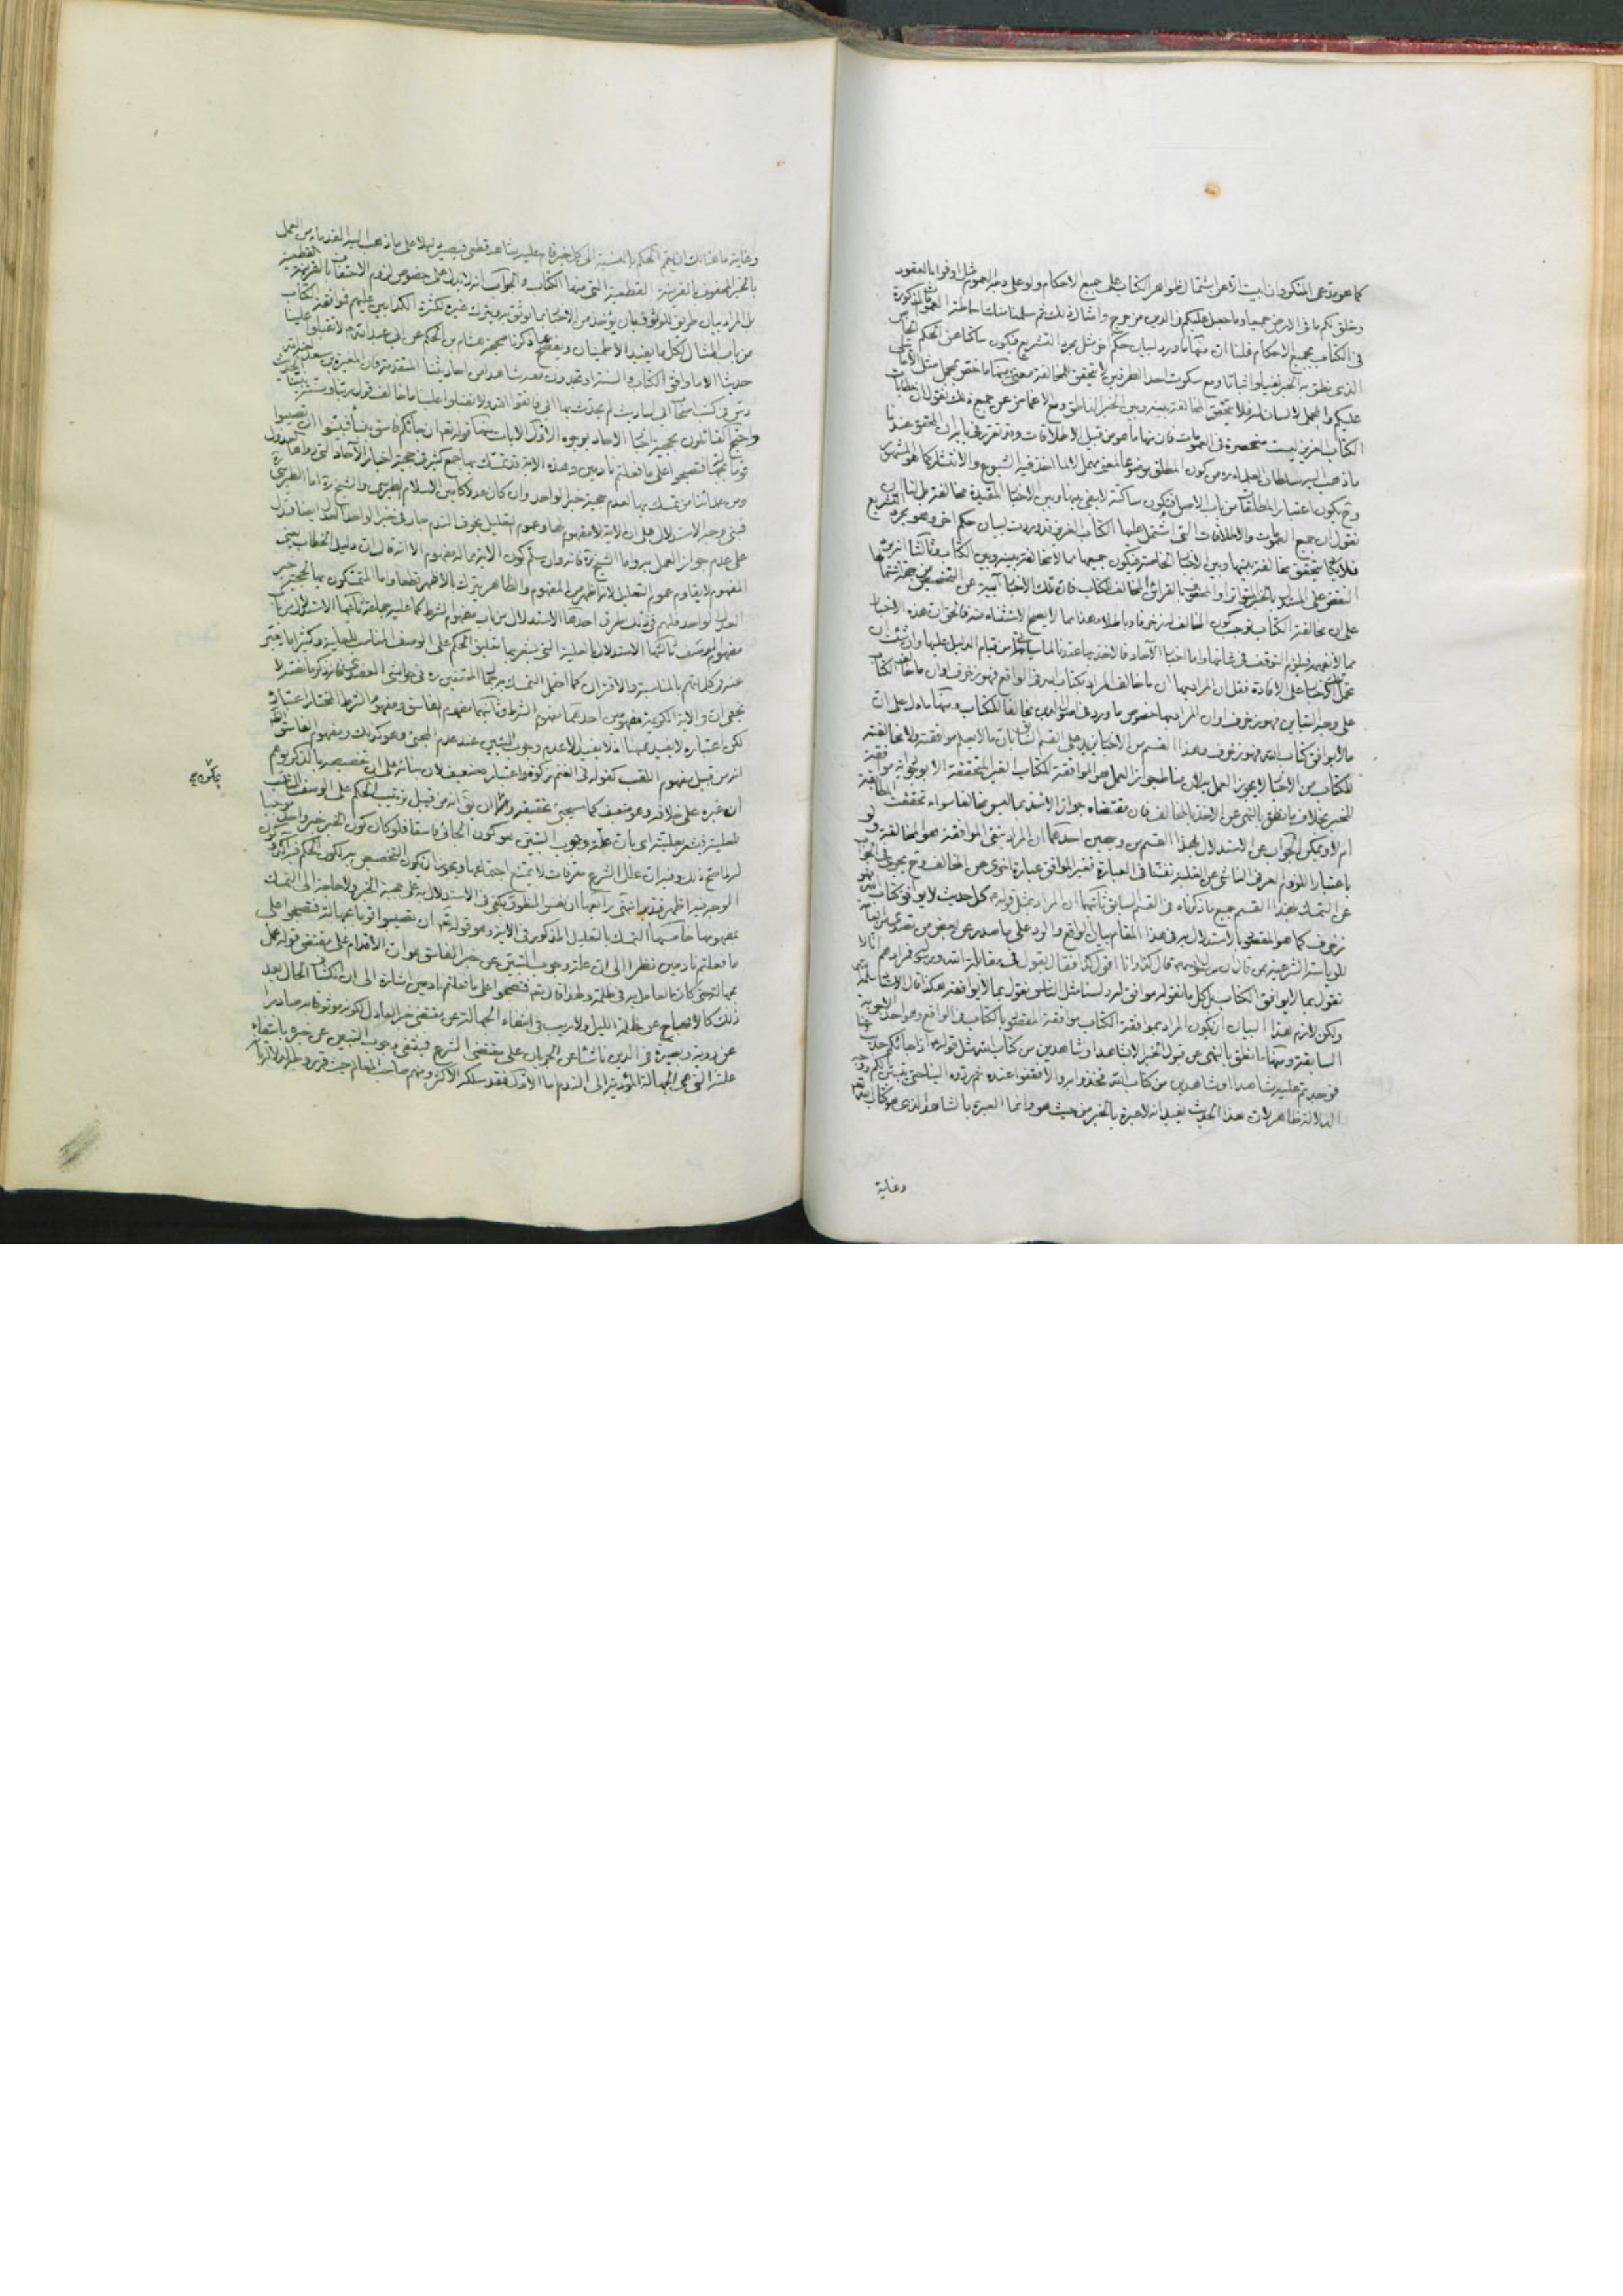 كما هو مدعى المنكر دون اثبات لمن اشتمال ظواهر الكتاب على جميع الاحكام ولو على وجه العموم مثل اوفوا بالعقود
وخلق لكم ما فى الارض جميعا وما جعل عليكم فى الدين من حرج وامثال ذلك ثم سلمنا احاطة العمومات المذكورة
فى الكتاب بجميع الاحكام قلنا ان منها ما ورد لبيان حكم اخر مثل مجرد التشريع فيكون ساكتا عن الحكم الخاص
الذى نطق به الخبر نفيا واثباتا ومع سكوت احد الطرفين لا يتحقق للمخالفة معنى ومنها ما خص بمجمل مثل الا ما يتلى
عليكم والمجمل لا لسان له فلا يتحقق المخالفة بينه وبين الخبر الناطق ومع الاغماض عن جميع ذلك نقول ان خطابات
الكتاب العزيز ليست منحصرة فى العمومات فان منها ما هو من قبيل الاطلاقات وقد تقرر فى بابه ان المحقق عندنا
ما ذهب اليه سلطان العلماء ره من كون المطلق موضوعا لمعنى مهمل لا ما اخذ فيه الشيوع والانتشار كما هو المشهور
وح يكون اعتبار المطلقات من باب الاصل فيكون ساكتة لا يبقى بينها وبين الاخبار المقيدة مخالفة بل لنا ان
نقول ان جميع العمومات والاطلاقات التى اشتمل عليها الكتاب العزيز قد وردت لبيان حكم اخر وهو مجرد التشريع
فلا يكاد يتحقق مخالفة بينها وبين الاخبار الخاصة فيكون جميعها مما لا مخالفة بينه وبين الكتاب وثالثا انه يرد
النقض على المستدل بالخبر المتواتر او المحفوف بالقرائن المخالف للكتاب فان تلك الاخبار آبية عن التخصيص من جهة اشتمالها
على ان مخالفة الكتاب توجب كون المخالف له زخرفا وباطلا وهذا مما لا يصح الاستثناء منه فالحق ان هذه الاخبار
مما لا نفهمه فيلزم التوقف فى شانها واما اخبار الآحاد فالاخذ بها عندنا لما سياتى من قيام الدليل عليها وان شئت ان
تحمل الاخبار على الافادة فقل ان المراد بها ان ما خالف المراد بكتاب الله فى الواقع فهو زخرف وان ما خالف الكتاب
على وجه التباين فهو زخرف او ان المراد بها خصوص ما ورد فى اصول الدين مخالفا للكتاب ومنها ما دل على ان
ما لا يوافق كتاب الله فهو زخرف وهذا القسم من الاخبار يزيد على القسم السابق بان ما لا يعلم موافقته ولا مخالفته
للكتاب من الاخبار لا يجوز العمل به لان مناط جواز العمل هو الموافقة للكتاب الغير المتحققة الا بوجدانه موافقة
للخبر بخلاف ما نطق بالنهى عن الاخذ بالمخالف فان مقتضاه جواز الاخذ بما ليس مخالفا سواء تحققت المطابقة
ام لا ويمكن الجواب عن الاستدلال بهذا القسم من وجهين احدهما ان المراد بنفى الموافقة هو المخالفة ولو
باعتبار اللزوم العرفى الناشى عن الغلبة تفننا فى العبارة فغير الموافق عبارة اخرى عن المخالف وح يجرى فى الجواب
عن التمسك بهذا القسم جميع ما ذكرناه فى القسم السابق ثانيهما ان المراد بمثل قوله ع كل حديث لا يوافق كتاب الله فهو
زخرف كما هو المقطوع بالاستدلال به فى هذا المقام بيان الواقع والرد على ما صدر عن بعض من تصدى من العامة
للرياسة الشرعية
نقول بما لا يوافق الكتاب بل كل ما نقوله موافق له
ولكن لازم هذا البيان ان يكون المراد بموافقة الكتاب موافقة المقصود بالكتاب فى الواقع وهو احد الاجوبة
السابقة ومنها ما نطق بالنهى عن قبول الخبر الا بشاهد او شاهدين من كتاب الله مثل قوله ع اذا جائكم حديث عنا
فوجدتم عليه شاهدا او شاهدين من كتاب الله فخذوا به والا فقفوا عنده ثم ردوه الينا حتى نبين لكم ووجه
الدلالة ظاهر لان هذا الحديث يفيد انه لا عبرة بالخبر من حيث هو وانما العبرة بالشاهد الذى هو كتاب الله تعالى
وغاية
وغاية ما هناك ان يتم الحكم بالنسبة الى كل خبر قام عليه شاهد قطعى فيصير دليلا على ما ذهب اليه القدماء من العمل
بالخبر المحفوف بالقرينة القطعية التى منها الكتاب والجواب انه لا يدل على خصوص لزوم الاحتفاف بالقرينة القطعية
بل المراد بيان طريق الوثوق بان يؤخذ من الاخبار بما يوثق به ويترك غيره لكثرة الكذابين عليهم فموافقة الكتاب
من باب المثال لكل ما يفيد الاطمينان ويفصح عما ذكرنا صحيحة هشام بن الحكم عن ابى عبد الله ع لا تقبلوا علينا
حديثا الا ما وافق الكتاب والسنة او تجدون معه شاهدا من احاديثنا المتقدمة فان المغيرة بن سعيد لعنه الله
دس فى كتب اصحاب ابى احاديث لم يحدث بها ابى فاتقوا الله ولا تقبلوا علينا ما خالف قول ربنا وسنة نبينا الحديث
واحتج القائلون بحجية اخبار الآحاد بوجوه الاول الايات منها قوله تعم ان جائكم فاسق بنبأ فتبينوا ان تصيبوا
قوما بجهالة فتصبحوا على ما فعلتم نادمين وهذه الاية قد تمسك بها جمع كثير فى حجية اخبار الآحاد التى رواها العدول
ومن علمائنا من تمسك بها لعدم حجية خبر الواحد وان كان عدلا كامين الاسلام الطبرسى والشيخ ره اما الطبرسى
فبنى وجه الاستدلال على ان الاية لا مفهوم لها وعموم التعليل بخوف الندم جار فى خبر الواحد العدل ايضا فيدل
على عدم جواز العمل به واما الشيخ ره فانه وان سلم كون الاية مما له مفهوم الا انه قال ان دليل الخطاب يعنى
المفهوم لا يقاوم عموم التعليل لانه اظهر من المفهوم والظاهر يترك بالاظهر قطعا واما المتمسكون بها لحجية خبر
العدل الواحد فلهم فى ذلك طرق احدها الاستدلال من باب مفهوم الشرط كما عليه جماعة ثانيها الاستدلال من باب
مفهوم الوصف ثالثها الاستدلال بالعلية التى يشعر بها تعليق الحكم على الوصف المناسب للعلية وكثيرا ما يعبر
عنه فى كلماتهم بالمناسبة والاقتران كما احتمل التمسك به
يخفى ان والاية الكريمة مفهومين احدهما مفهوم الشرط وثانيهما مفهوم الفاسق ومفهوم الشرط المختار اعتباره
لكن اعتباره لا يفيد ههنا اذ لا يفيد الا عدم وجوب التبين عند عدم المجئ وهو كذلك ومفهوم الفاسق
انه من قبيل مفهوم اللقب كقوله فى الغنم زكوة واعتباره ضعيف
ان غيره على خلافه وهو ضعيف كما سيجئ تحقيقه
للعلية فيشعر بعليته اى بان علة وجوب التبين هو كون الجائى فاسقا فلو كان كون الخبر خبر واحد موجبا
له لما صح ذلك وفيه ان علل الشرع معرفات لا يمتنع اجتماعها ويجوز ان يكون التخصيص به لكون الحكم فيه آكد
الوجه فيه اظهر فتدبر انتهى رابعها ان نفس المنطوق يكفى فى الاستدلال به على حجية الخبر ولا حاجة الى التمسك
بمفهومها خامسها التمسك بالتعليل المذكور فى الاية وهو قوله تعم ان تصيبوا قوما بجهالة فتصبحوا على
ما فعلتم نادمين نظرا الى ان علة وجوب التبين عن خبر الفاسق هو ان الاقدام على مقتضى قوله عمل
بجهالة حتى كان العامل به فى ظلمة ولهذا قال تعم فتصبحوا على ما فعلتم نادمين اشارة الى ان انكشاف الحال بعد
ذلك كالاصباح عن ظلمة الليل ولا ريب فى انتفاء الجهالة عن مقتضى خبر العادل لكونه موثوقا به صادرا
عن روية وبصيرة فى الدين ناشئا عن الجريان على مقتضى الشرع فينتفى وجوب التبين عن خبره بانتفاء
علته التى هى الجهالة المؤدية الى الندم اما الاول فقد سلكه الاكثر ومنهم صاحب المعالم حيث قرر